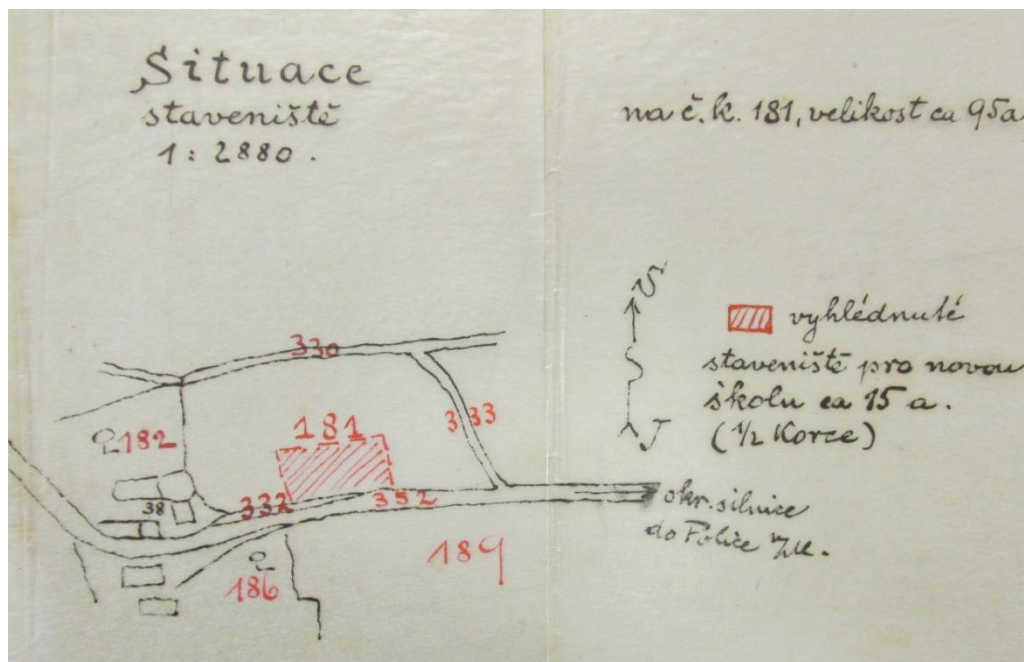 Situace
staveniště
1 : 2880 .
na č. k. 181, velikost ca 95a
S
J
vyhlédnuté
staveniště pro novou
školu ca 15 a.
(½ Korce)
330
333
181
182
38
332
352
okr. silnice
do Police n/M.
189
186